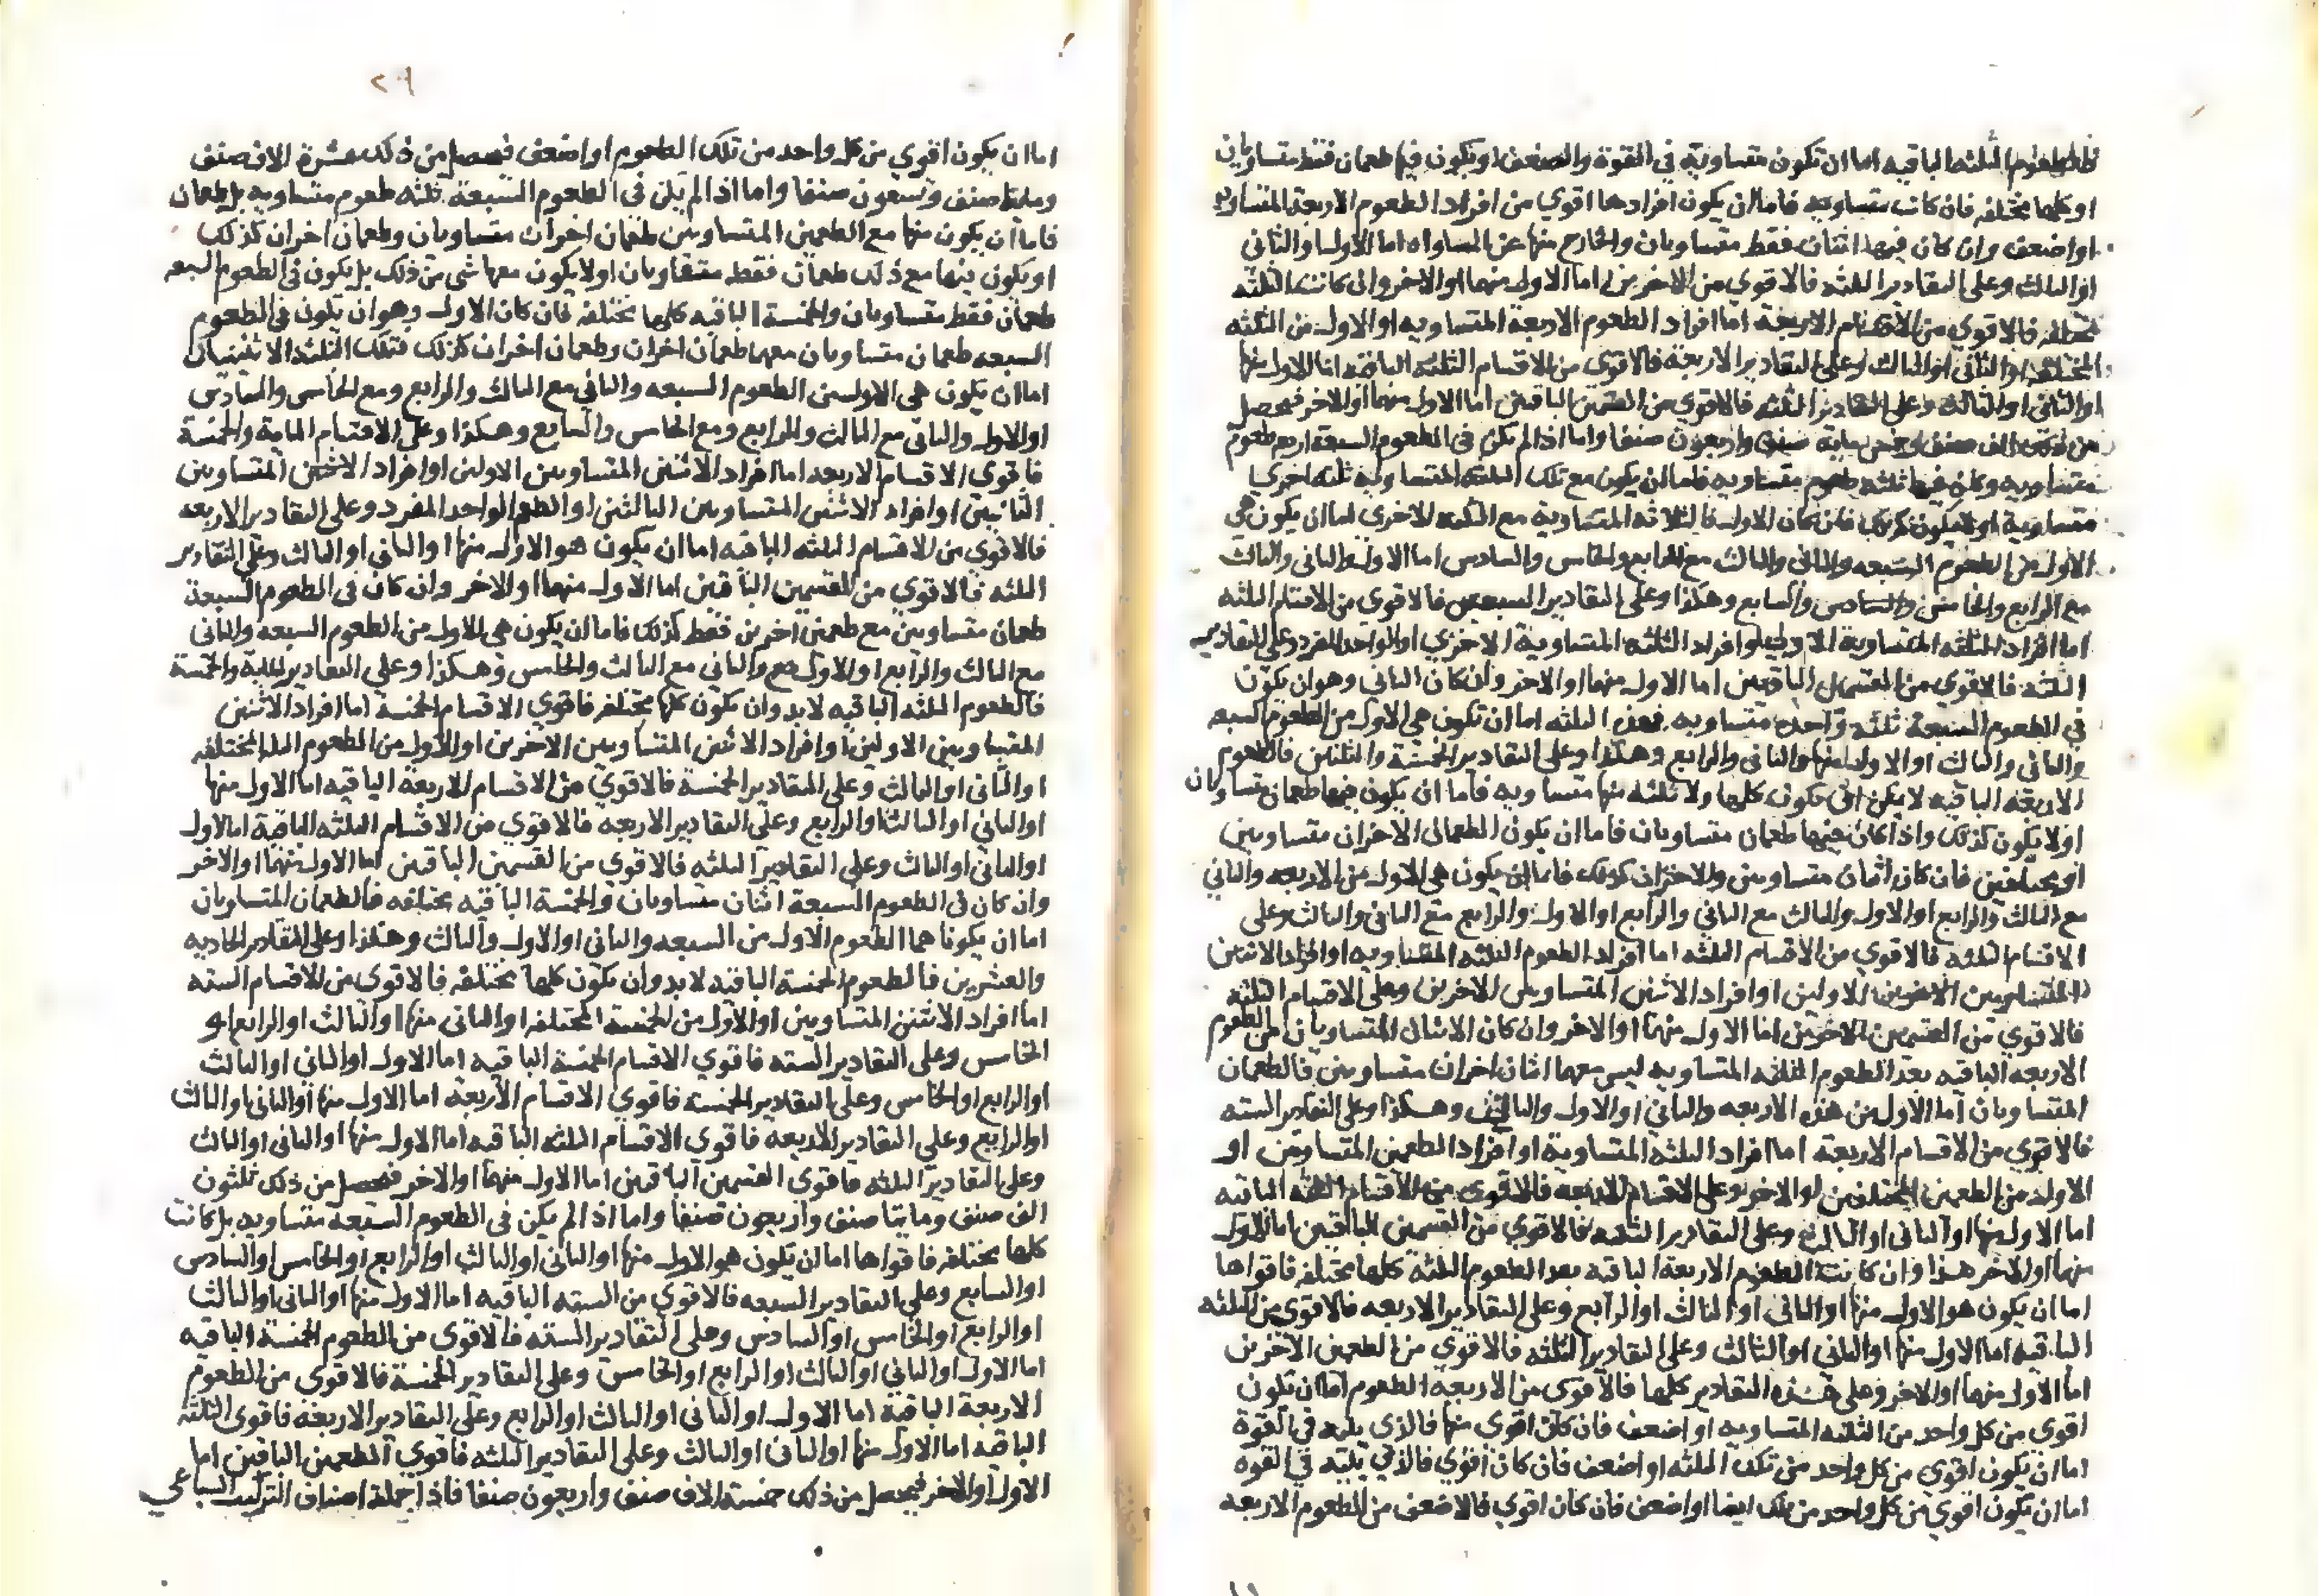 فالطعوم الثلثه الباقيه اما ان تكون متساوية في القوة والضعف او يكون فيها طعمان فقط متساويان
او كلها مختلفه فان كانت متساويه فاما ان يكون افرادها اقوي من افراد الطعوم الاربعة المتساويه
او اضعف وان كان فيها اثنان فقط متساويان والخارج منها عن المساواه اما الاول او الثاني
او الثالث وعلى التقادير الثلثه فالاقوي من الاخرين اما الاول منهما او الاخر وان كانت الثلثه
مختلفه فالاقوي من الاقسام الاربعة اما افراد الطعوم الاربعة المتساويه او الاول من الثلثه
المختلفه او الثاني او الثالث وعلى التقادير الاربعة فالاقوي من الاقسام الثلثه الباقيه اما الاول منها
او الثاني او الثالث وعلى التقادير الثلثه فالاقوي من القسمين الباقيين اما الاول منهما او الاخر فيحصل
من ذلك الف صنف واربعون صنفا واما اذا لم تكن في الطعوم السبعة اربع طعوم
متساويه وكان فيها ثلثه طعوم متساويه فاما ان يكون مع تلك الثلثه المتساويه ثلثه اخري
متساوية او لا يكون كذلك فان كان الاول فالثلاثه المتساوية مع الثلثه الاخري اما ان يكون هي
الاول من الطعوم السبعه والثاني والثالث مع الرابع والخامس والسادس اما الاول والثاني والثالث
مع الرابع والخامس والسابع وهكذا وعلى التقادير السبعين فالاقوي من الاقسام الثلثه
اما افراد الثلثه المتساوية الاولي او افراد الثلثه المتساوية الاخري او الواحد المفرد وعلى التقادير
الثلثه فالاقوي من القسمين الباقيين اما الاول منهما او الاخر وان كان الثاني وهو ان يكون
في الطعوم السبعة ثلثه واحده متساويه فهذه الثلثه اما ان تكون هي الاول من الطعوم السبعه
والثاني والثالث او الاول منها والثاني والرابع وهكذا وعلى التقادير الخمسة والثلثين فالطعوم
الاربعه الباقيه لا يمكن ان تكون كلها ولا ثلثه منها متساويه فاما ان يكون فيها طعمان متساويان
او لا يكون كذلك واذا كان فيها طعمان متساويان فاما ان يكون الطعمان الاخران متساويين
او مختلفين فان كان اثنان متساويين والاخران كذلك فاما ان يكون هي الاول من الاربعه والثاني
مع الثالث والرابع او الاول والثالث مع الثاني والرابع او الاول والرابع مع الثاني والثالث وعلى
الاقسام الثلثه فالاقوي من الاقسام الثلثه اما افراد الطعوم الثلثه المتساويه او افراد الاثنين
المتساويين الاولين او افراد الاثنين المتساويين الاخرين وعلى الاقسام الثلثه
فالاقوي من القسمين الاخرين اما الاول منهما او الاخر وان كان الاثنان المتساويان من الطعوم
الاربعه الباقيه بعد الطعوم الثلثه المتساويه ليس معهما اثنان اخران متساويين فالطعمان
المتساويان اما الاول من هذه الاربعه والثاني او الاول والثالث وهكذا وعلى التقادير السته
فالاقوي من الاقسام الاربعة اما افراد الثلثه المتساوية او افراد الطعمين المتساويين او
الاول من الطعمين المختلفين او الاخر وعلى الاقسام الاربعه فالاقوي من الاقسام الثلثه الباقيه
اما الاول منها او الثاني او الثالث وعلى التقادير الثلثه فالاقوي من القسمين الباقيين اما الاول
منهما او الاخر هذا وان كانت الطعوم الاربعة الباقيه بعد الطعوم الثلثه كلها مختلفه فاقواها
اما ان يكون هو الاول منها او الثاني او الثالث او الرابع وعلى التقادير الاربعه فالاقوي من الثلثه
الباقيه اما الاول منها او الثاني او الثالث وعلى التقادير الثلثه فالاقوي من الطعمين الاخرين
اما الاول منهما او الاخر وعلى هذه التقادير كلها فالاقوي من الاربعة الطعوم اما ان تكون
اقوي من كل واحد من الثلثه المتساويه او اضعف فان كان اقوي منها فالذي يليه في القوة
اما ان يكون اقوي من كل واحد من تلك الثلثه او اضعف فان كان اقوي فالذي يليه في القوه
اما ان يكون اقوي من كل واحد من تلك ايضا او اضعف فان كان اقوي فالاضعف من الطعوم الاربعه
٢٩
اما ان يكون اقوي من كل واحد من تلك الطعوم او اضعف فيحصل من ذلك عشرة الاف صنف
ومايتا صنف وتسعون صنفا واما اذا لم يكن في الطعوم السبعة ثلثه طعوم متساويه بل طعمان
فاما ان يكون منها مع الطعمين المتساويين طعمان اخران متساويان وطعمان اخران كذلك
او يكون منها مع ذلك طعمان فقط متساويان او لا يكون معها شي من ذلك بل يكون في الطعوم السبعه
طعمان فقط متساويان والخمسة الباقيه كلها مختلفه فان كان الاول وهو ان يكون في الطعوم
السبعه طعمان متساويان معهما طعمان اخران وطعمان اخران كذلك فتلك الثلثه الاثنينات
اما ان يكون هي الاول من الطعوم السبعه والثاني مع الثالث والرابع ومع الخامس والسادس
او الاول والثاني مع الثالث والرابع ومع الخامس والسابع وهكذا وعلى الاقسام الماية والخمسة
فاقوي الاقسام الاربعه اما افراد الاثنين المتساويين الاولين او افراد الاثنين المتساويين
الثانيين او افراد الاثنين المتساويين الثالثين او الطعم الواحد المفرد وعلى التقادير الاربعه
فالاقوي من الاقسام الثلثه الباقيه اما ان يكون هو الاول منها او الثاني او الثالث وعلى التقادير
الثلثه فالاقوي من القسمين الباقيين اما الاول منهما او الاخر وان كان في الطعوم السبعة
طعمان متساويين مع طعمين اخرين فقط كذلك فاما ان يكون هي الاول من الطعوم السبعه والثاني
مع الثالث والرابع او الاول مع والثاني مع الثالث والخامس وهكذا وعلى التقادير الماية والخمسة
فالطعوم الثلثه الباقيه لابد وان يكون كلها مختلفه فاقوي الاقسام الخمسة اما افراد الاثنين
المتساويين الاولين او افراد الاثنين المتساويين الاخرين او الاول من الطعوم الثلثه المختلفه
او الثاني او الثالث وعلى التقادير الخمسة فالاقوي من الاقسام الاربعة الباقيه اما الاول منها
او الثاني او الثالث او الرابع وعلى التقادير الاربعه فالاقوي من الاقسام الثلثه الباقية اما الاول
او الثاني او الثالث وعلى التقادير الثلثه فالاقوي من القسمين الباقيين اما الاول منهما او الاخر
وان كان في الطعوم السبعة اثنان متساويان والخمسة الباقيه مختلفه فالطعمان المتساويان
اما ان يكونا هما الطعوم الاول من السبعه والثاني او الاول والثالث وهكذا وعلى التقادير الحاديه
والعشرين فالطعوم الخمسة الباقيه لابد وان يكون كلها مختلفه فالاقوي من الاقسام السته
اما افراد الاثنين المتساويين او الاول من الخمسة المختلفه او الثاني منها او الثالث او الرابع او
الخامس وعلى التقادير السته فاقوي الاقسام الخمسة الباقيه اما الاول او الثاني او الثالث
او الرابع او الخامس وعلى التقادير الخمسة فاقوي الاقسام الاربعة اما الاول منها او الثاني او الثالث
او الرابع وعلى التقادير الاربعه فاقوي الاقسام الثلثه الباقيه اما الاول منها او الثاني او الثالث
وعلى التقادير الثلثه فاقوي القسمين الباقيين اما الاول منهما او الاخر فيحصل من ذلك ثلثون
الف صنف ومايتا صنف واربعون صنفا واما اذا لم يكن في الطعوم السبعة متساويه بل كانت
كلها مختلفه فاقواها اما ان يكون هو الاول منها او الثاني او الثالث او الرابع او الخامس او السادس
او السابع وعلى التقادير السبعه فالاقوي من السته الباقيه اما الاول منها او الثاني او الثالث
او الرابع او الخامس او السادس وعلى التقادير السته فالاقوي من الطعوم الخمسة الباقيه
اما الاول او الثاني او الثالث او الرابع او الخامس وعلى التقادير الخمسة فالاقوي من الطعوم
الاربعة الباقية اما الاول او الثاني او الثالث او الرابع وعلى التقادير الاربعة فاقوي الثلثه
الباقيه اما الاول منها او الثاني او الثالث وعلى التقادير الثلثه فاقوي الطعمين الباقيين اما
الاول او الاخر فيحصل من ذلك خمسة الاف صنف واربعون صنفا فاذا جملة اصناف التركيب السباعي